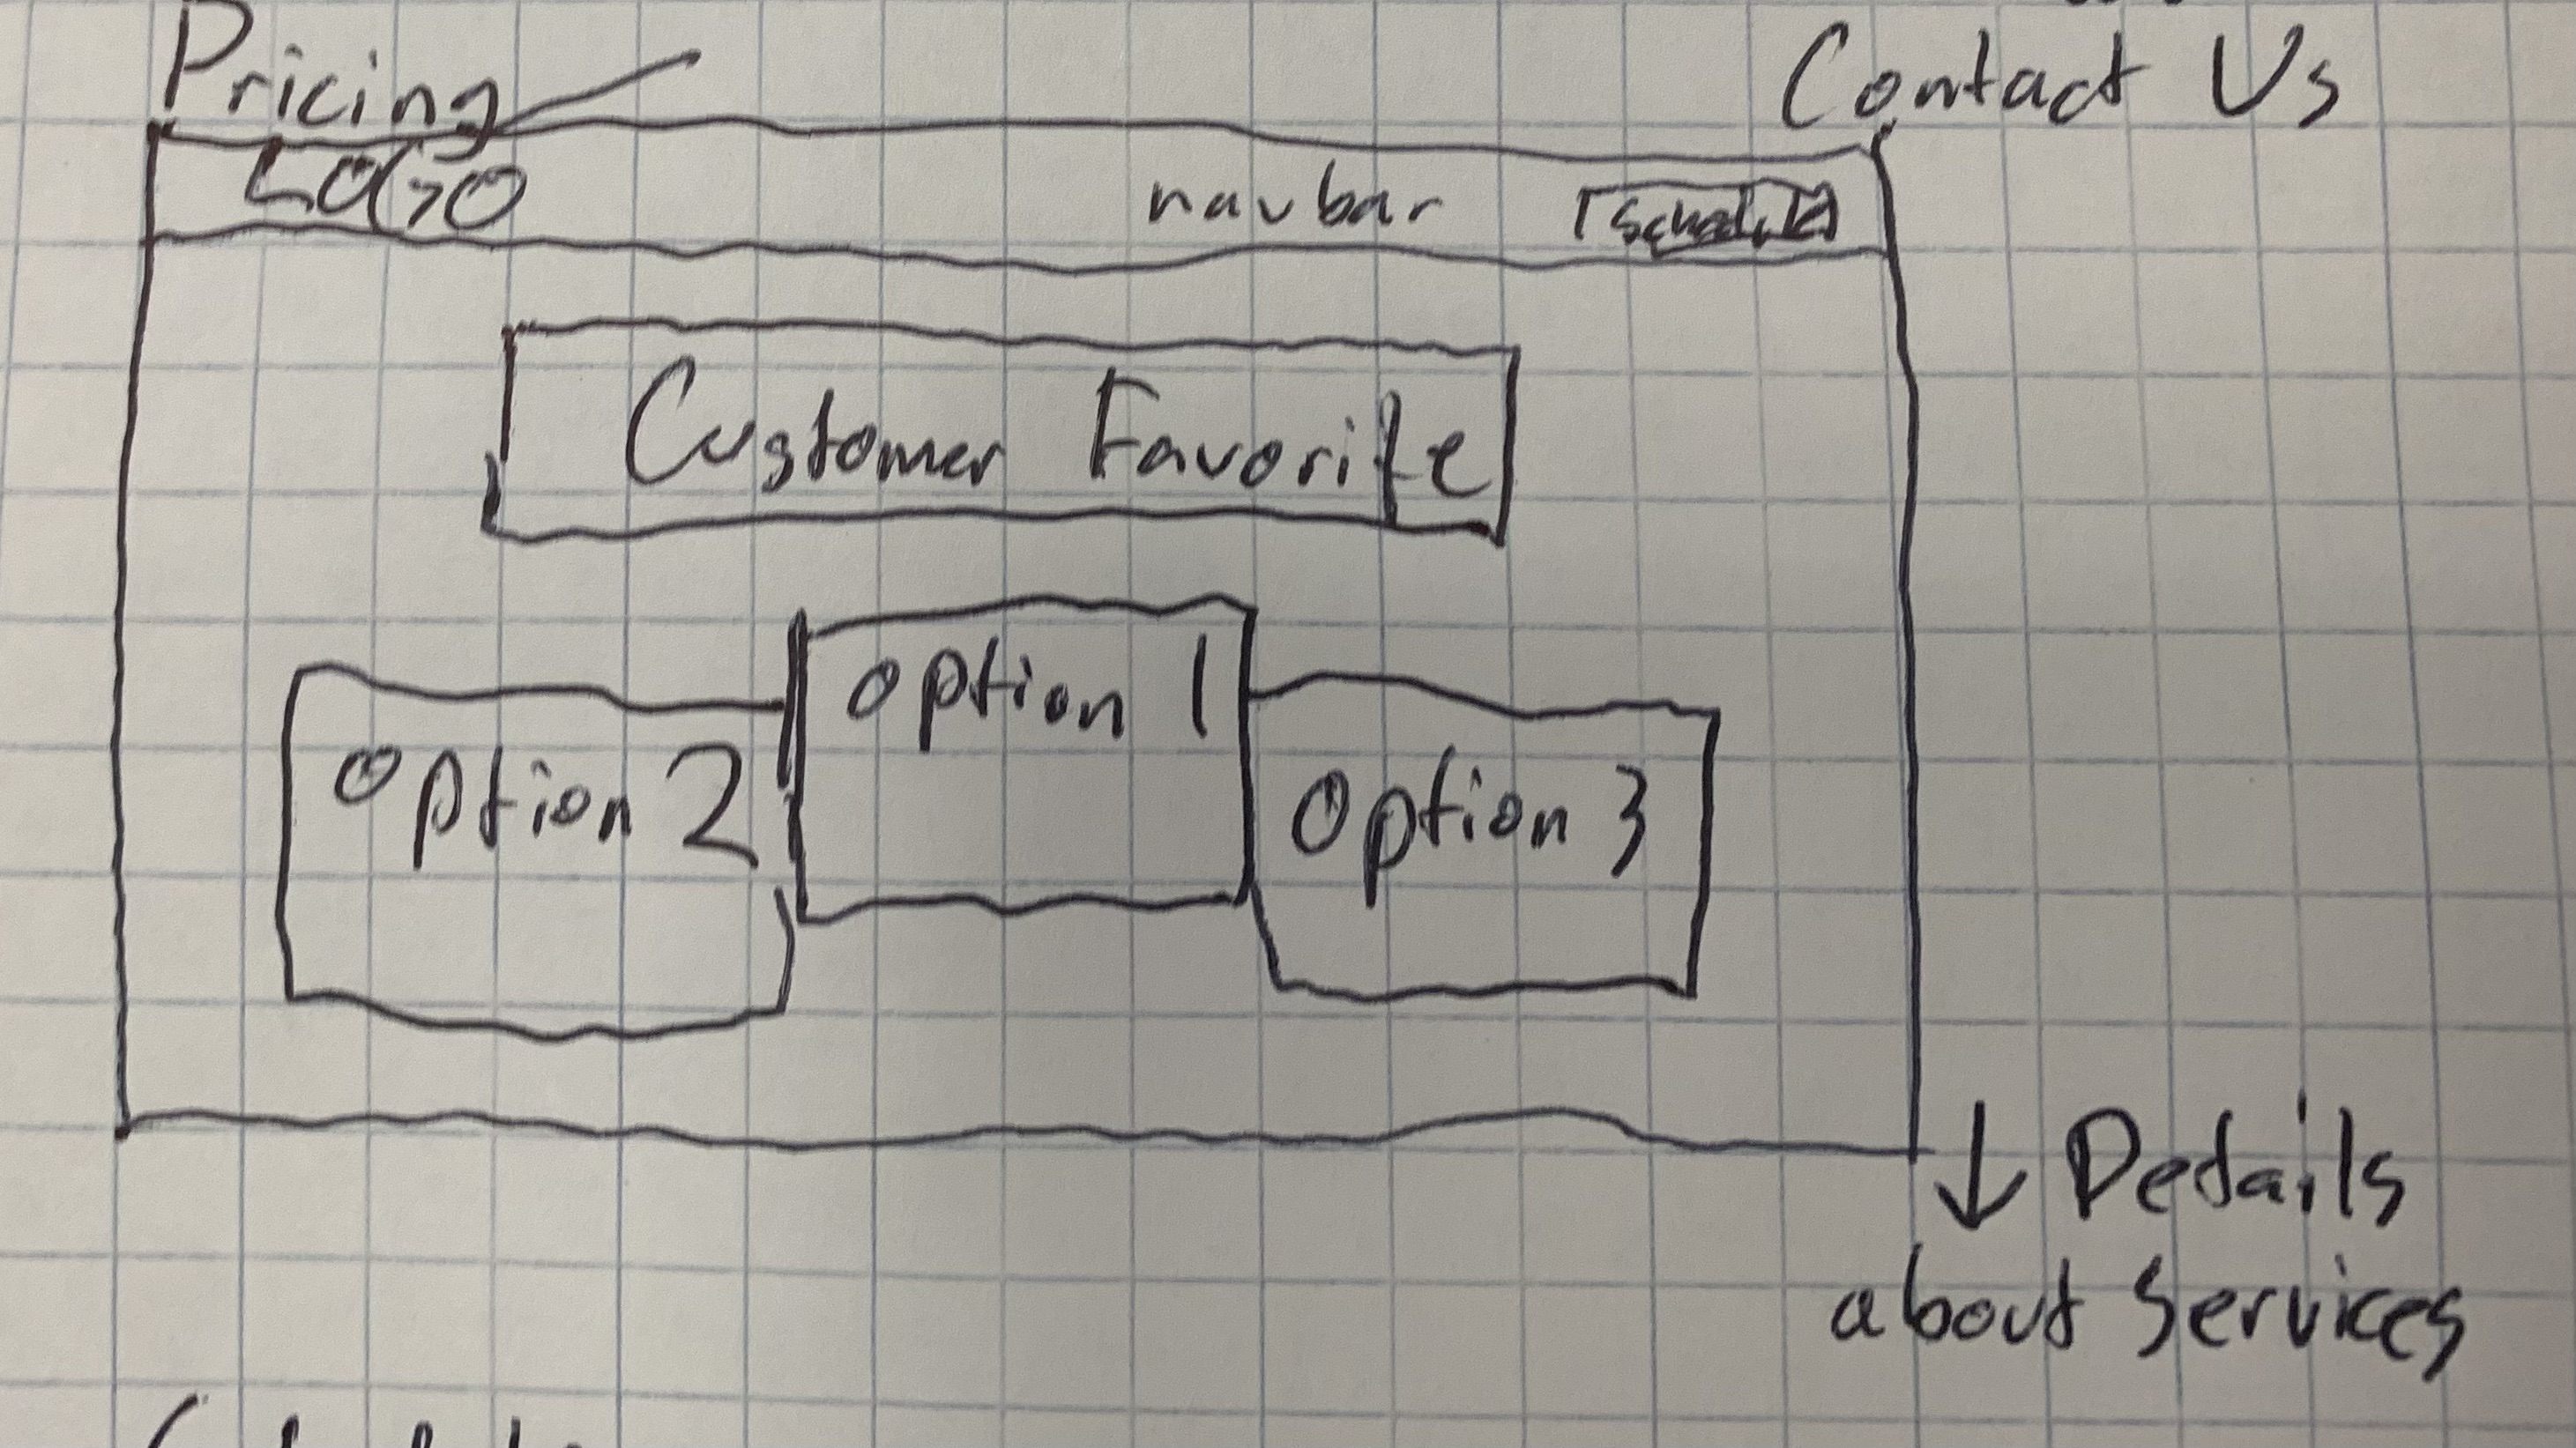 Pricing
Contact Us
LOGO
navbar
Schedule
Customer Favorite
option 1
option 2
Option 3
↓ Details
about Services